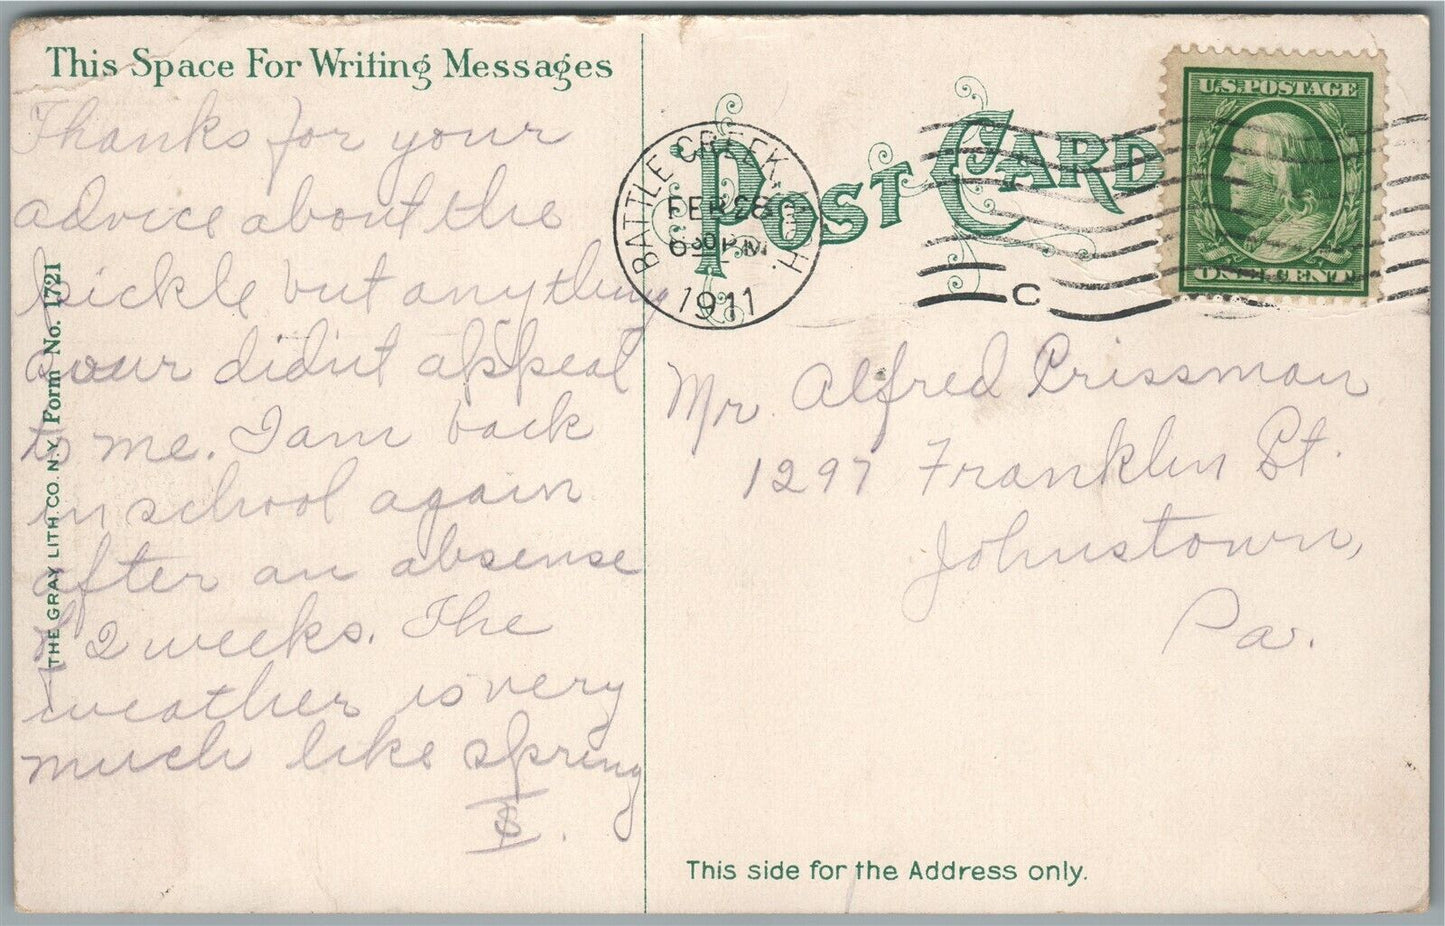 This Space For Writing Messages
Thanks for your
advice about the
pickle but anything
sour did'nt appeal
to me. I am back
in school again
after an absense
of 2 weeks. The
weather is very
much like spring
THE GRAY LITH. CO. N.Y. Form No. 1721
POST CARD
BATTLE CREEK, MICH.
FEB 28
6 30 PM
1911
C
U.S. POSTAGE
ONE CENT
Mr Alfred Crissman
1297 Franklin St.
Johnstown,
Pa.
This side for the Address only.